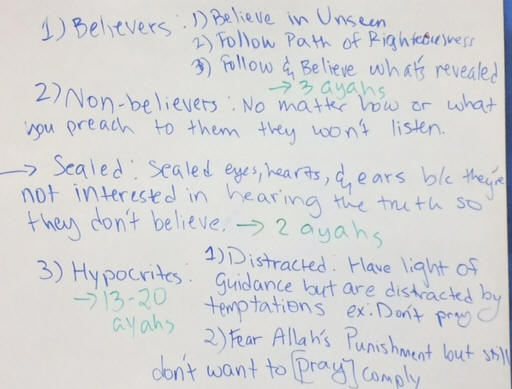 1) Believers: 1) Believe in Unseen
2) Follow Path of Righteousness
3) Follow & Believe what's revealed
→ 3 ayahs
2) Non-believers: No matter how or what
you preach to them they won't listen.
→ Sealed: Sealed eyes, hearts, & ears b/c they're
not interested in hearing the truth so
they don't believe. → 2 ayahs
3) Hypocrites:
→ 13-20
ayahs
1) Distracted: Have light of
guidance but are distracted by
temptations ex: Don't pray
2) Fear Allah's Punishment but still
don't want to [pray] comply